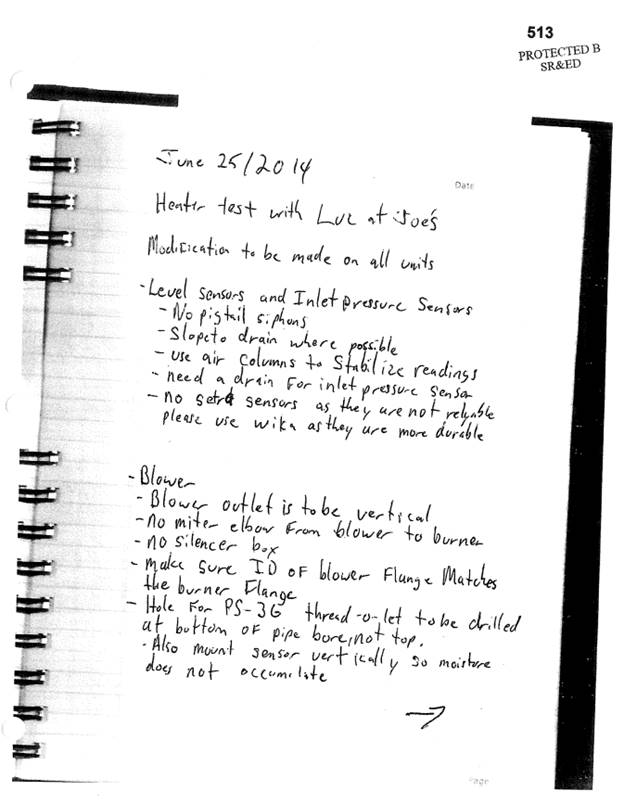 513
PROTECTED B
SR&ED
June 25/2014
Date
Heater test with Luc at Joe's
Modification to be made on all units
- Level sensors and Inlet pressure Sensors
- No pigtail siphons
- Slope to drain where possible
- use air columns to Stabilize readings
- need a drain For inlet pressure sensor
- no setra sensors as they are not relyable
please use wika as they are more durable
- Blower
- Blower outlet is to be vertical
- no miter elbow From blower to burner
- no silencer box
- make sure ID OF blower Flange Matches
the burner Flange
- Hole For PS-3G thread-o-let to be drilled
at bottom OF pipe bore, not top.
- Also mount sensor vertically so moisture
does not occumulate
→
Page